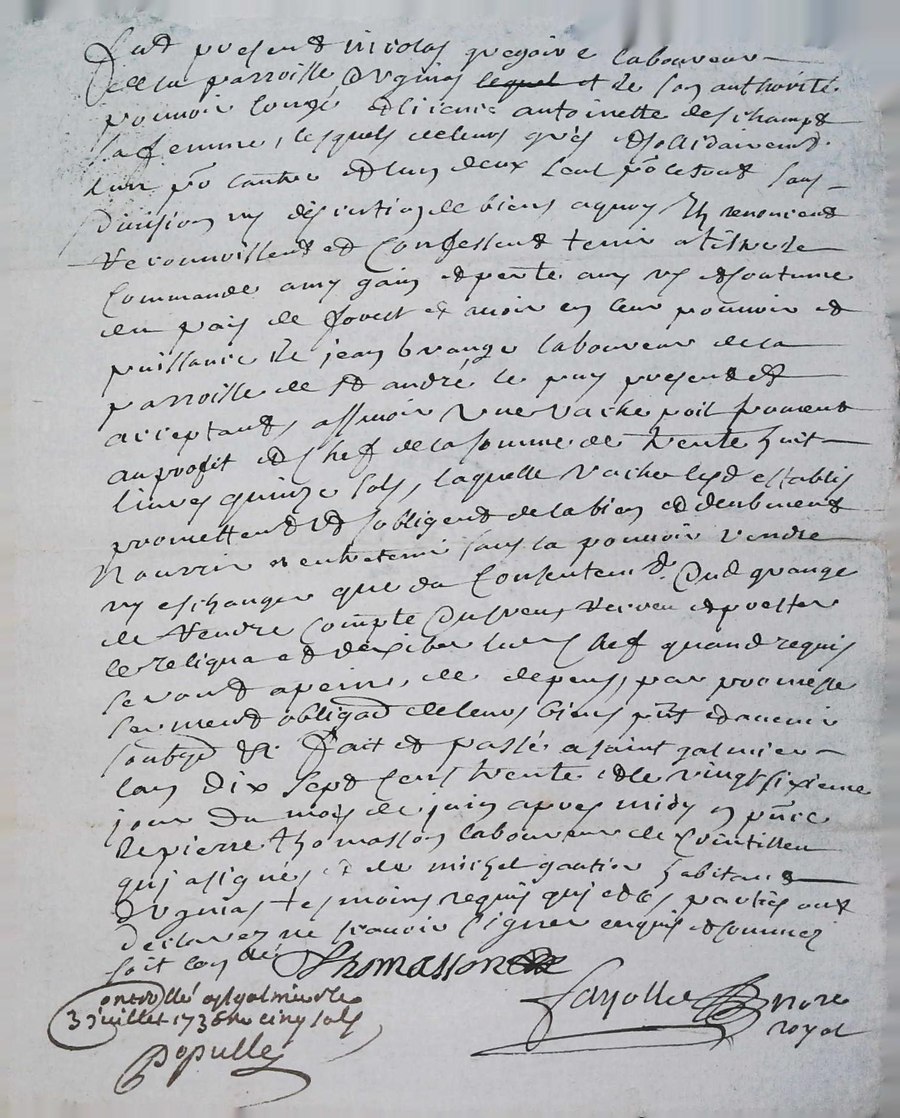 Fut present nicolas gregoire laboureur
de la parroisse d'ugnias lequel et de son authorité
pouvoir congé et licence antoinette deschamps
sa femme, lesquels de leurs grés et sollidairement
l'un po.r l'autre et l'un deux seul po.r le tout sans
division ny discution de biens a quoy ils renoncent
reconnoissent et confessent tenir a tiltre de
commande a my gain et perte a us et coutume
du païs de forest et avoir en leur pouvoir et
puissance de jean grange laboureur de la
parroisse de st andré le puy present et
acceptant, assavoir une vache poil froment
au profit et chef de la somme de trente huit
livres quinze sols, laquelle vache lesd establis
promettent et s'obligent de la bien et deubment
nourrir et entretenir sans la pouvoir vendre
ny eschanger que du consentem.t dud grange
de rendre compte du preus et prester
le reliqua et d'exiber led chef quand requis
seront a peine, de depens, par promesse
serment obligaon de leurs biens pnt et avenir
soubzon &c. fait et passé a saint galmier
l'an dix sept cent trente et le vingt sixieme
jour du mois de juin apres midy en pnce
de pierre thomasson laboureur de
qui a signé, et de michel gautier habitant
d'ugnias tesmoins requis qui et les parties ont
declarez ne scavoir signer enquis et sommez
soit con.lé Thomasson
controllé a st galmier le
3 juillet 173 cinq sols
Populle
Fayolle nore
royal